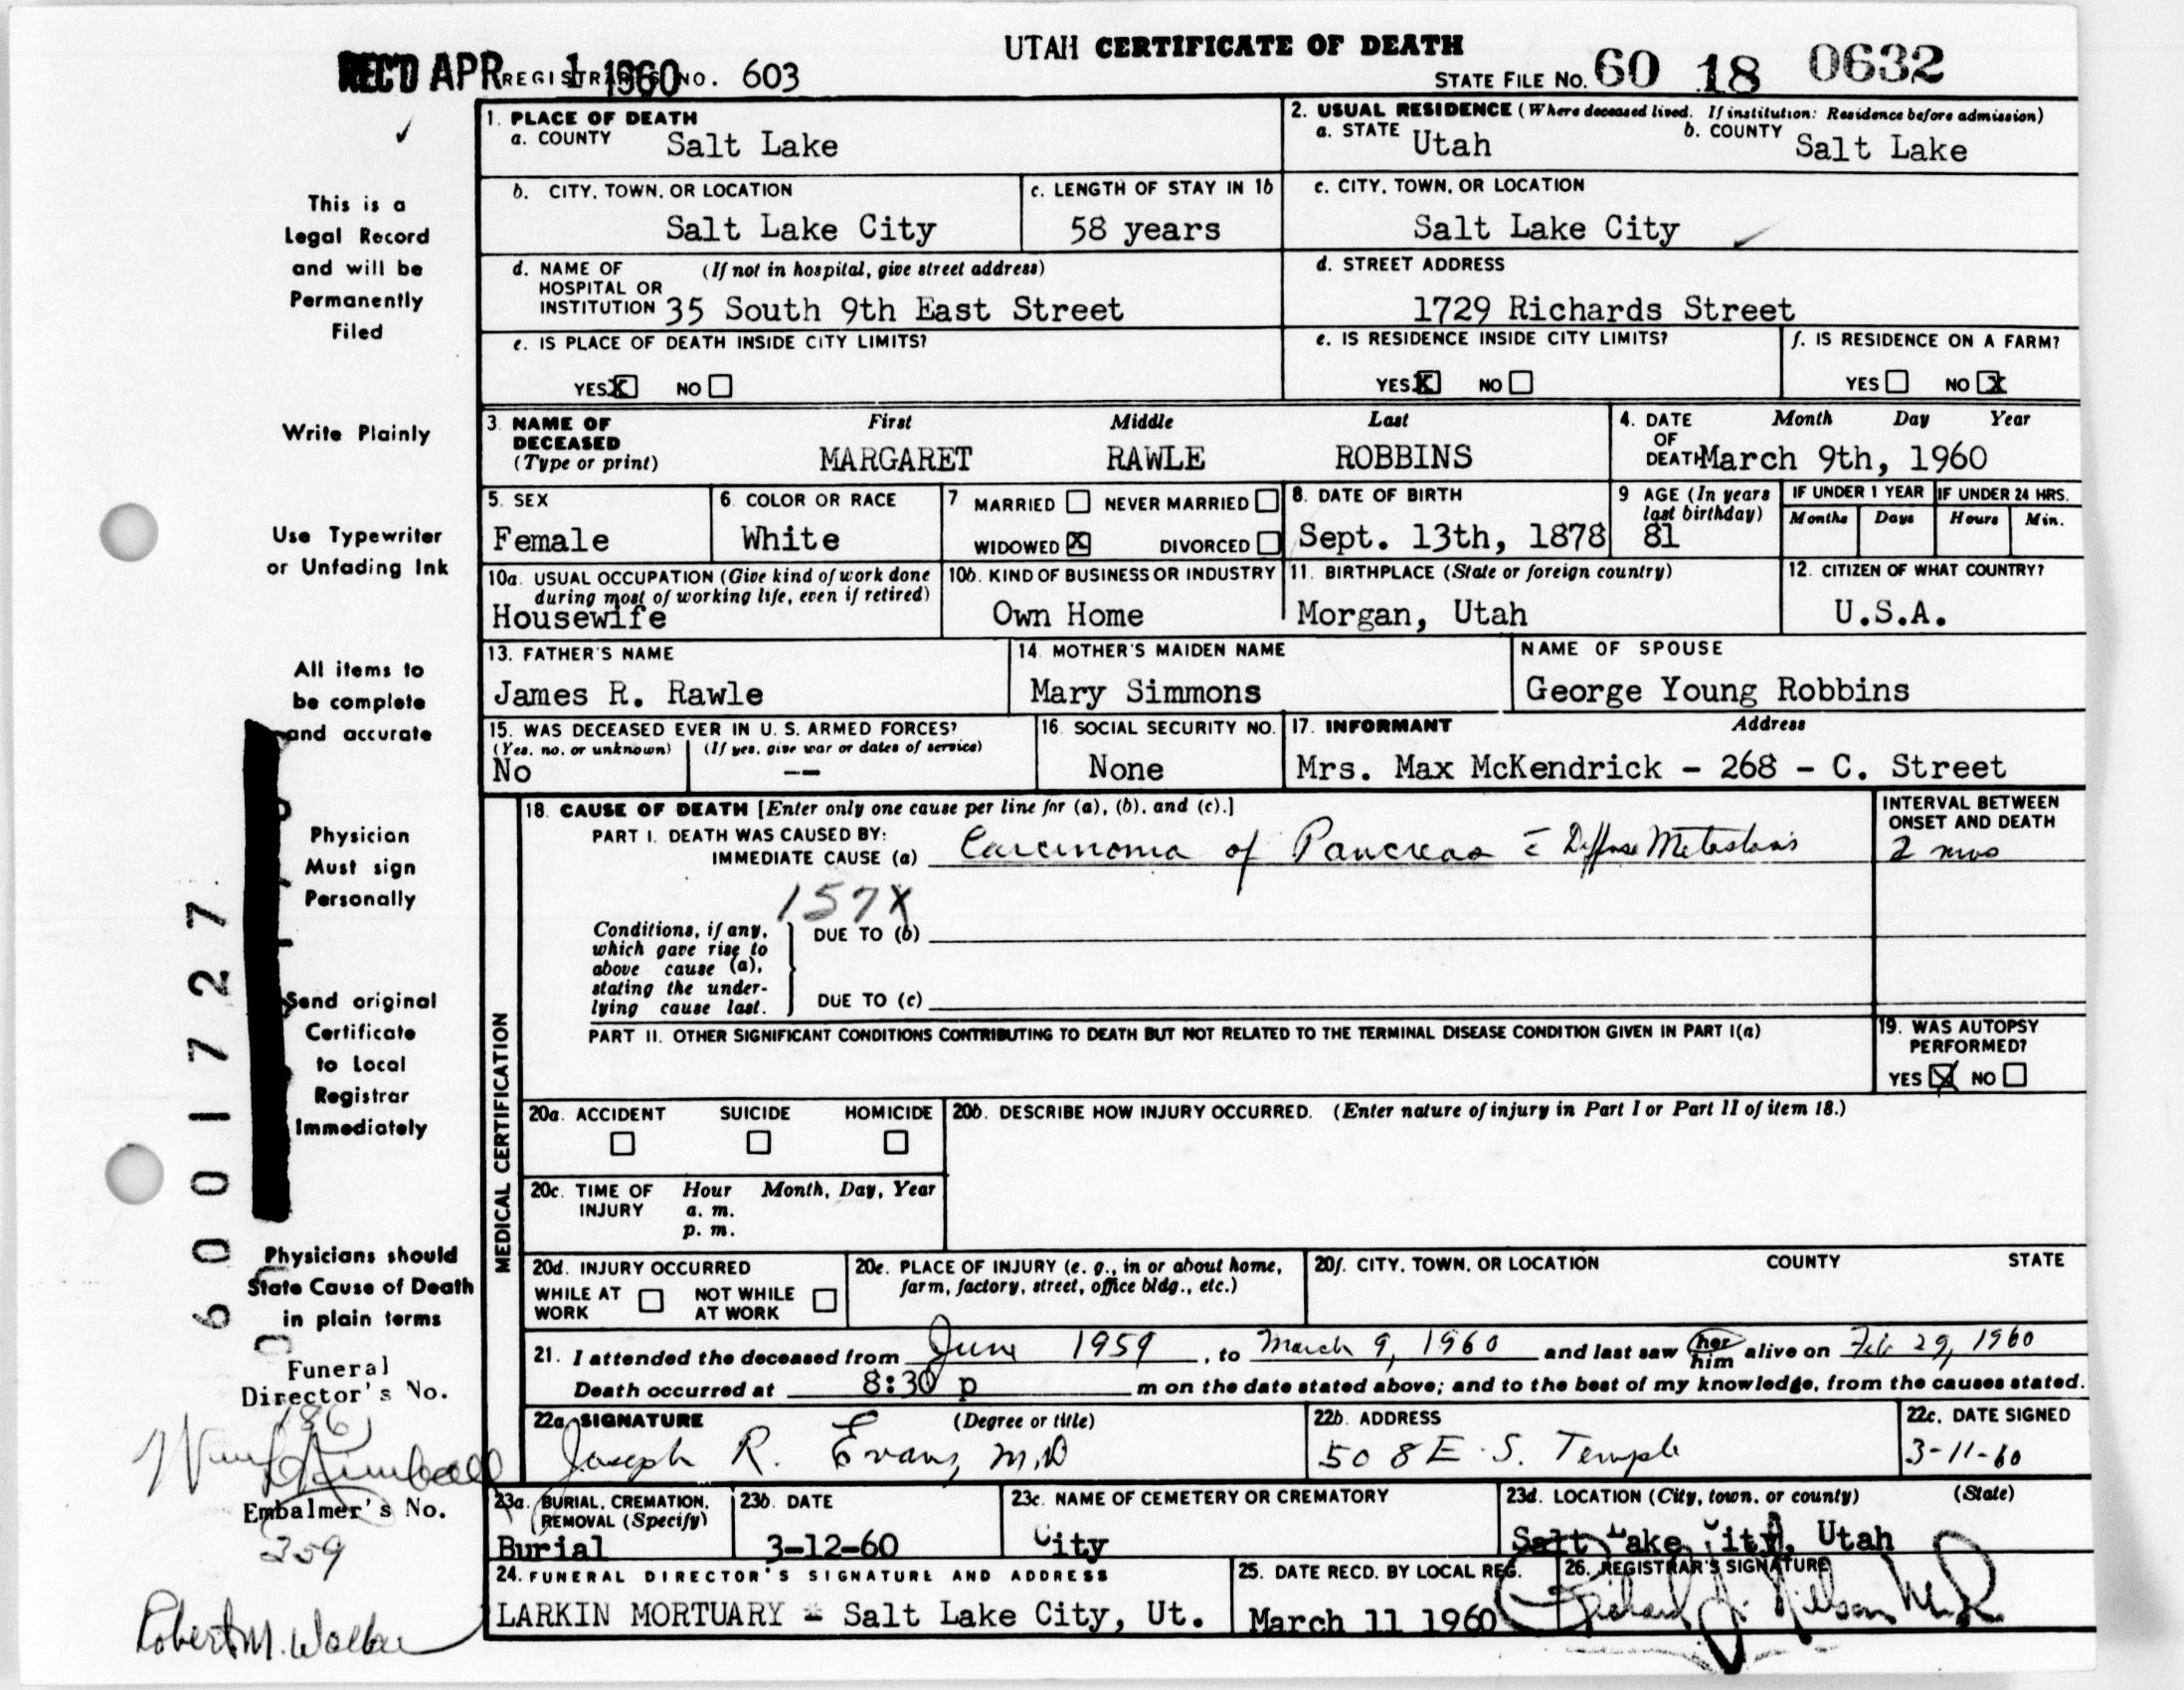 UTAH CERTIFICATE OF DEATH
REC'D APR 1 1960 REGISTRAR'S NO. 603 STATE FILE NO. 60 18 0632
1. PLACE OF DEATH
a. COUNTY Salt Lake
2. USUAL RESIDENCE (Where deceased lived. If institution: Residence before admission)
a. STATE Utah b. COUNTY Salt Lake
b. CITY, TOWN, OR LOCATION Salt Lake City
c. LENGTH OF STAY IN 1b 58 years
c. CITY, TOWN, OR LOCATION Salt Lake City
d. NAME OF HOSPITAL OR INSTITUTION (If not in hospital, give street address) 35 South 9th East Street
d. STREET ADDRESS 1729 Richards Street
e. IS PLACE OF DEATH INSIDE CITY LIMITS?
YES X NO
e. IS RESIDENCE INSIDE CITY LIMITS?
YES X NO
f. IS RESIDENCE ON A FARM?
YES NO X
3. NAME OF DECEASED (Type or print)
First Middle Last
MARGARET RAWLE ROBBINS
4. DATE OF DEATH Month Day Year
March 9th, 1960
5. SEX Female
6. COLOR OR RACE White
7 MARRIED NEVER MARRIED
WIDOWED X DIVORCED
8. DATE OF BIRTH Sept. 13th, 1878
9 AGE (In years last birthday) 81
IF UNDER 1 YEAR Months Days
IF UNDER 24 HRS. Hours Min.
10a. USUAL OCCUPATION (Give kind of work done during most of working life, even if retired)
Housewife
10b. KIND OF BUSINESS OR INDUSTRY
Own Home
11. BIRTHPLACE (State or foreign country)
Morgan, Utah
12. CITIZEN OF WHAT COUNTRY?
U.S.A.
13. FATHER'S NAME
James R. Rawle
14. MOTHER'S MAIDEN NAME
Mary Simmons
NAME OF SPOUSE
George Young Robbins
15. WAS DECEASED EVER IN U. S. ARMED FORCES?
(Yes, no, or unknown) (If yes, give war or dates of service)
No --
16. SOCIAL SECURITY NO.
None
17. INFORMANT Address
Mrs. Max McKendrick - 268 - C. Street
MEDICAL CERTIFICATION
18. CAUSE OF DEATH [Enter only one cause per line for (a), (b), and (c).]
PART I. DEATH WAS CAUSED BY:
IMMEDIATE CAUSE (a) Carcinoma of Pancreas c̄ Diffuse Metastasis
INTERVAL BETWEEN ONSET AND DEATH
2 mos
157X
Conditions, if any, which gave rise to above cause (a), stating the underlying cause last.
DUE TO (b)
DUE TO (c)
PART II. OTHER SIGNIFICANT CONDITIONS CONTRIBUTING TO DEATH BUT NOT RELATED TO THE TERMINAL DISEASE CONDITION GIVEN IN PART I(a)
19. WAS AUTOPSY PERFORMED?
YES X NO
20a. ACCIDENT SUICIDE HOMICIDE
20b. DESCRIBE HOW INJURY OCCURRED. (Enter nature of injury in Part I or Part II of item 18.)
20c. TIME OF INJURY Hour Month, Day, Year
a. m.
p. m.
20d. INJURY OCCURRED
WHILE AT WORK NOT WHILE AT WORK
20e. PLACE OF INJURY (e. g., in or about home, farm, factory, street, office bldg., etc.)
20f. CITY, TOWN, OR LOCATION COUNTY STATE
21. I attended the deceased from June 1959, to March 9, 1960 and last saw her him alive on Feb 29, 1960
Death occurred at 8:30 p m on the date stated above; and to the best of my knowledge, from the causes stated.
22a. SIGNATURE (Degree or title)
Joseph R. Evans, M.D
22b. ADDRESS
508 E. S. Temple
22c. DATE SIGNED
3-11-60
23a. BURIAL, CREMATION, REMOVAL (Specify)
Burial
23b. DATE
3-12-60
23c. NAME OF CEMETERY OR CREMATORY
City
23d. LOCATION (City, town, or county) (State)
Salt Lake City, Utah
24. FUNERAL DIRECTOR'S SIGNATURE AND ADDRESS
LARKIN MORTUARY - Salt Lake City, Ut.
25. DATE RECD. BY LOCAL REG.
March 11 1960
26. REGISTRAR'S SIGNATURE
This is a
Legal Record
and will be
Permanently
Filed
Write Plainly
Use Typewriter
or Unfading Ink
All items to
be complete
and accurate
Physician
Must sign
Personally
Send original
Certificate
to Local
Registrar
Immediately
Physicians should
State Cause of Death
in plain terms
Funeral
Director's No.
186
Embalmer's No.
259
6001727